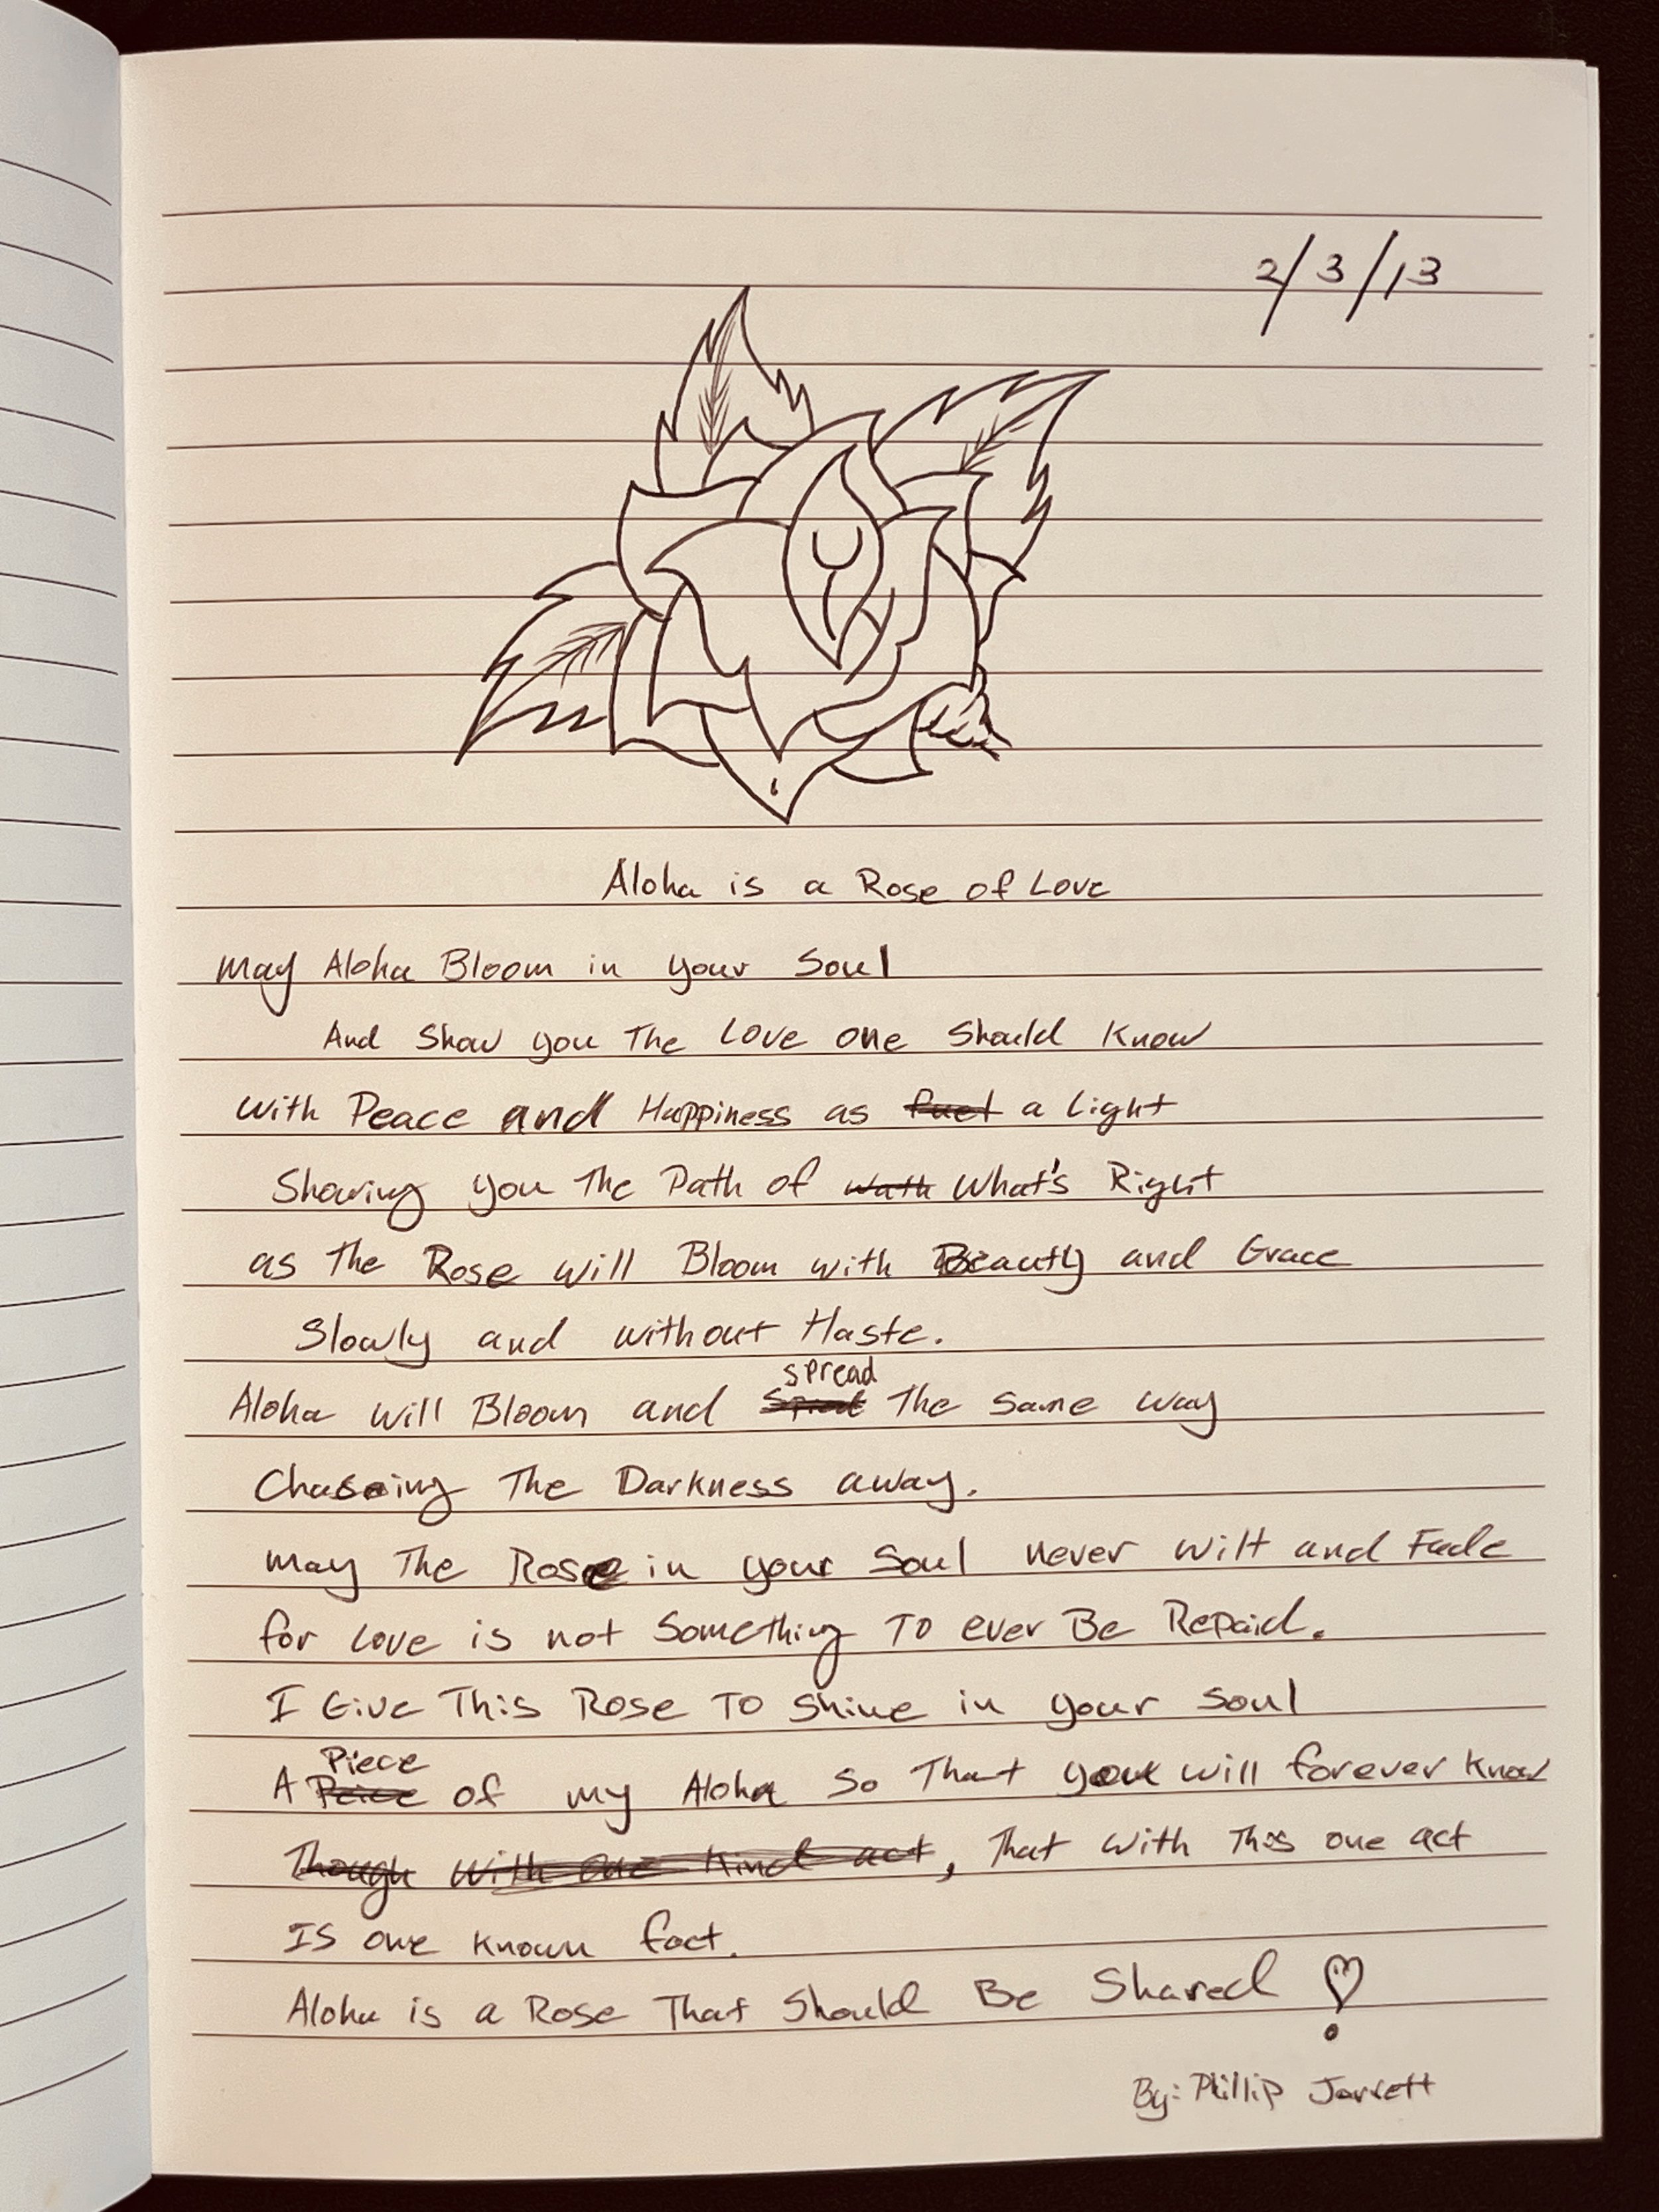 2/3/13
Aloha is a Rose of Love
May Aloha Bloom in your Soul
And Show you The Love one Should Know
With Peace and Happiness as fuel a Light
Showing you The Path of wath What's Right
as The Rose will Bloom with Beauty and Grace
Slowly and without Haste.
spread
Aloha will Bloom and The Same way
Chasing The Darkness away.
May The Rose in your Soul never Wilt and Fade
for Love is not Something To ever Be Repaid.
I Give This Rose To Shine in your Soul
Piece
A Peice of my Aloha So That you will forever Know
Though With one Kind act, That With This one act
Is one known fact.
Aloha is a Rose That Should Be Shared
By: Phillip Jarrett